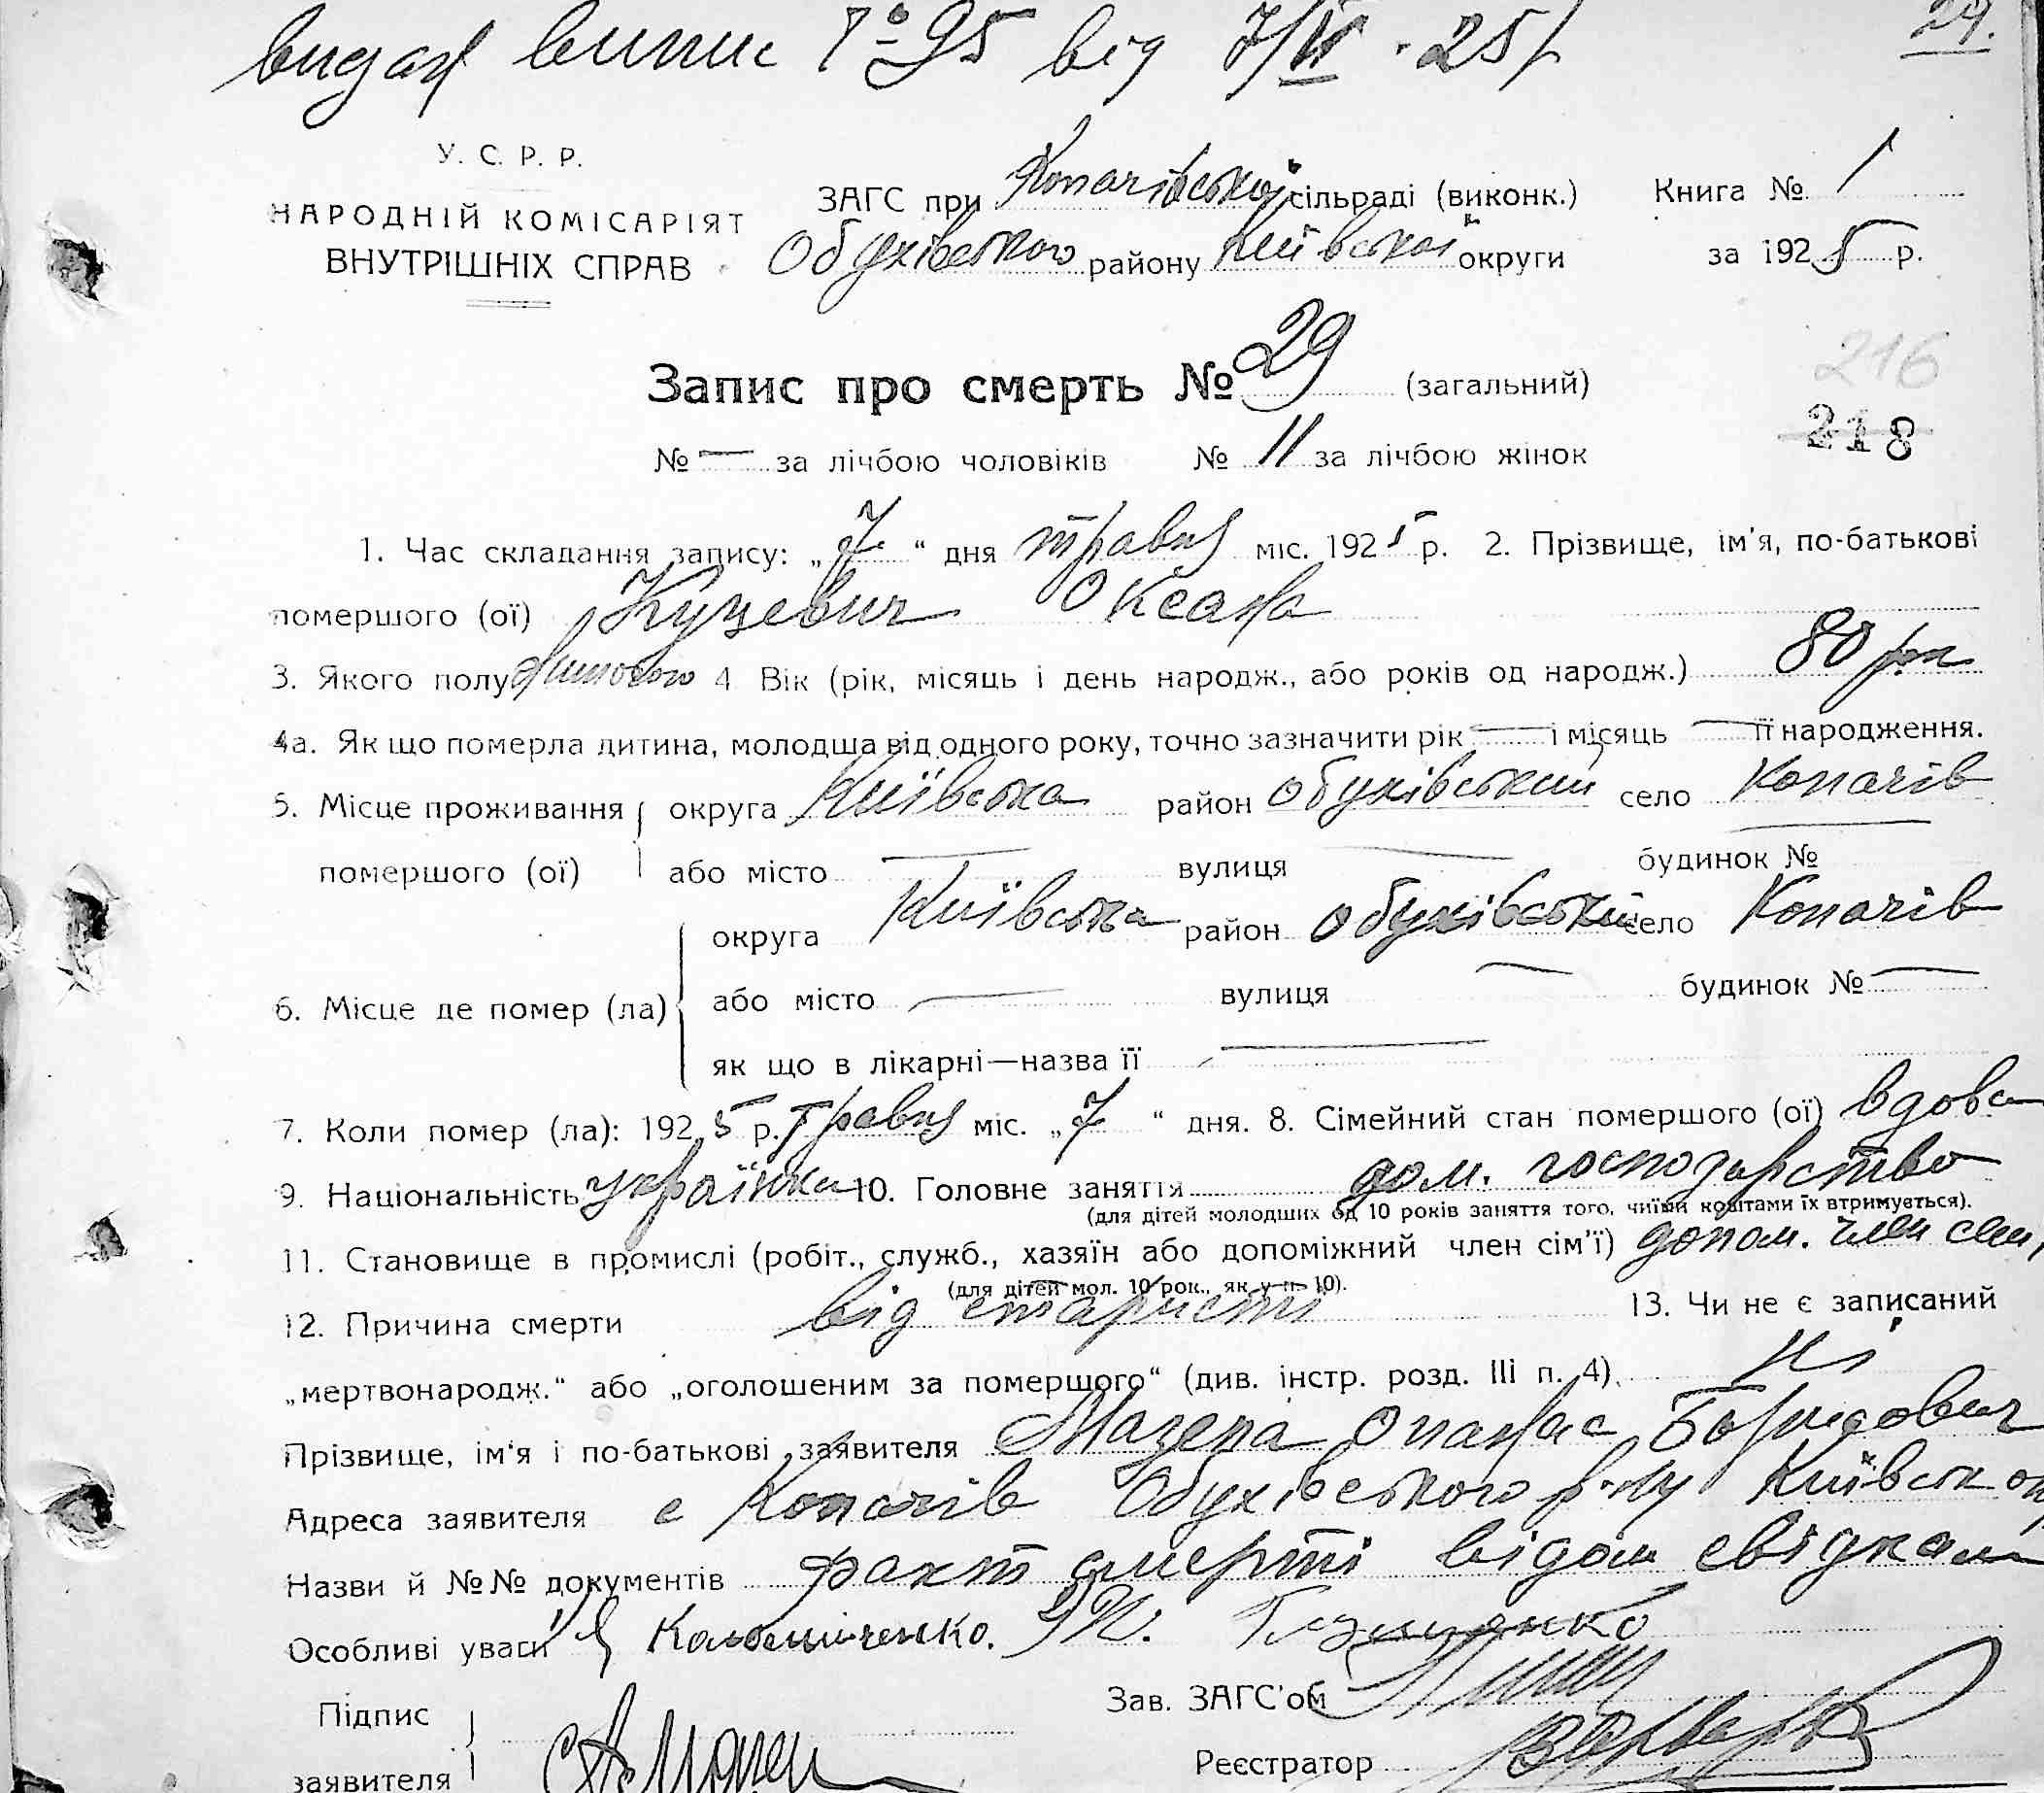 видал випис № 95 від 7/VI - 25 р.
29.
У. С. Р. Р.
НАРОДНІЙ КОМІСАРІЯТ
ВНУТРІШНІХ СПРАВ
ЗАГС при Копачівській сільраді (виконк.) Книга № 1
Обухівського району Київської округи за 1925 р.
Запис про смерть № 29 (загальний)
216
218
№ — за лічбою чоловіків № 11 за лічбою жінок
1. Час складання запису: „7“ дня травня міс. 1925 р. 2. Прізвище, ім'я, по-батькові
помершого (ої) Куцевич Оксана
3. Якого полу жіночого 4 Вік (рік, місяць і день народж., або років од народж.) 80 рок
4а. Як що померла дитина, молодша від одного року, точно зазначити рік — і місяць — її народження.
5. Місце проживання округа Київська район Обухівський село Копачів
помершого (ої) або місто — вулиця — будинок № —
округа Київська район Обухівський село Копачів
6. Місце де помер (ла) або місто — вулиця — будинок № —
як що в лікарні—назва її —
7. Коли помер (ла): 1925 р. травня міс. „7“ дня. 8. Сімейний стан помершого (ої) вдова
9. Національність українка 10. Головне заняття дом. господарство
(для дітей молодших од 10 років заняття того, чиїми коштами їх втримується).
11. Становище в промислі (робіт., служб., хазяїн або допоміжний член сім'ї) допом. член сем.
(для дітей мол. 10 рок., як у п. 10).
12. Причина смерти від старисти 13. Чи не є записаний
„мертвонародж.“ або „оголошеним за помершого“ (див. інстр. розд. III п. 4). Ні
Прізвище, ім'я і по-батькові заявителя Мазепа Опанас
Адреса заявителя с Копачів Обухівського р-ну Київськ ок
Назви й №№ документів факт смерті відом свідкам
Особливі уваги Коломийченко.
Підпис
заявителя
Зав. ЗАГС'ом
Реєстратор